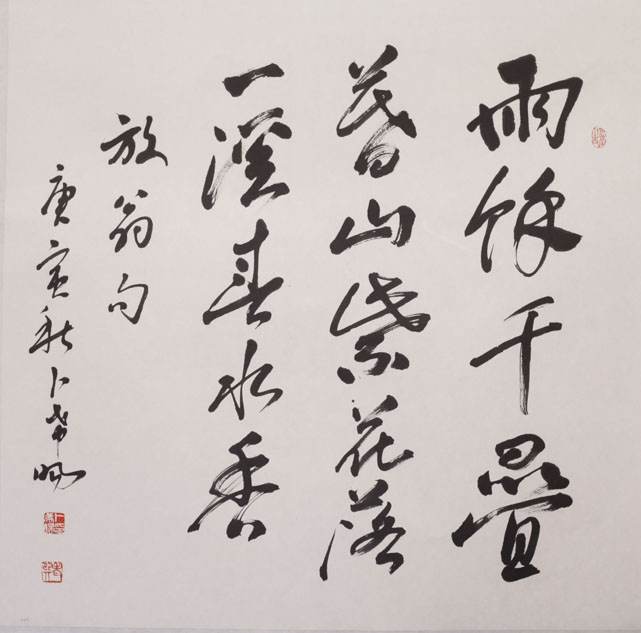 雨余千叠
暮山紫花落
一溪春水香
放翁句
庚寅秋卜希旸